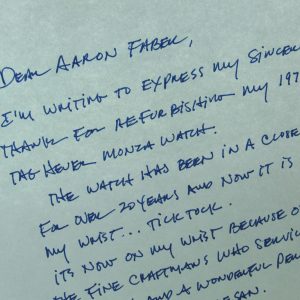 Dear Aaron Faber,
I'm writing to express my sincere
thanks for refurbishing my 197
Tag Heuer Monza watch.
The watch has been in a close
for over 20 years and now it is
my wrist... tick tock.
its now on my wrist because o
fine craftmans who servic
and a wonderful per
san.